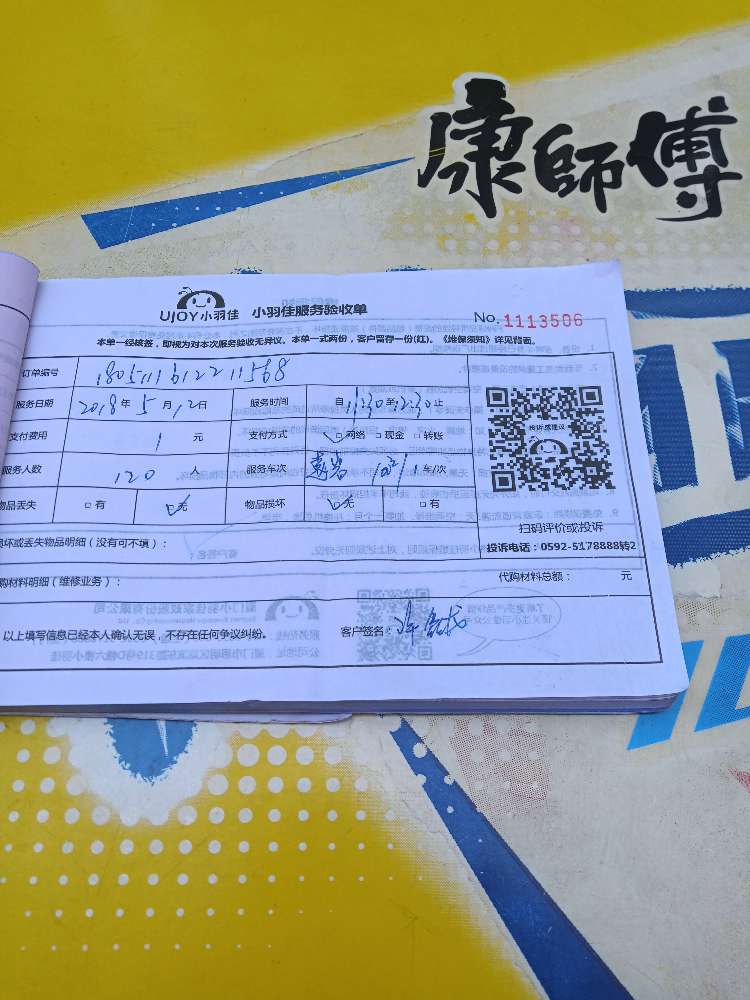 康師傅
UJOY小羽佳 小羽佳服务验收单 No.1113506
本单一经核签，即视为对本次服务验收无异议。本单一式两份，客户留存一份(红)。《维保须知》详见背面。
订单编号
服务日期 2018年5月12日 服务时间 自11:30至12:30止
支付费用 1 元 支付方式 网络 现金 转账
服务人数 120 人 服务车次 1车/次
物品丢失 有 无 物品损坏 无 有
投诉或建议
扫码评价或投诉
投诉电话：0592-5178888转2
损坏或丢失物品明细（没有可不填）：
购材料明细（维修业务）： 代购材料总额： 元
以上填写信息已经本人确认无误，不存在任何争议纠纷。 客户签名：